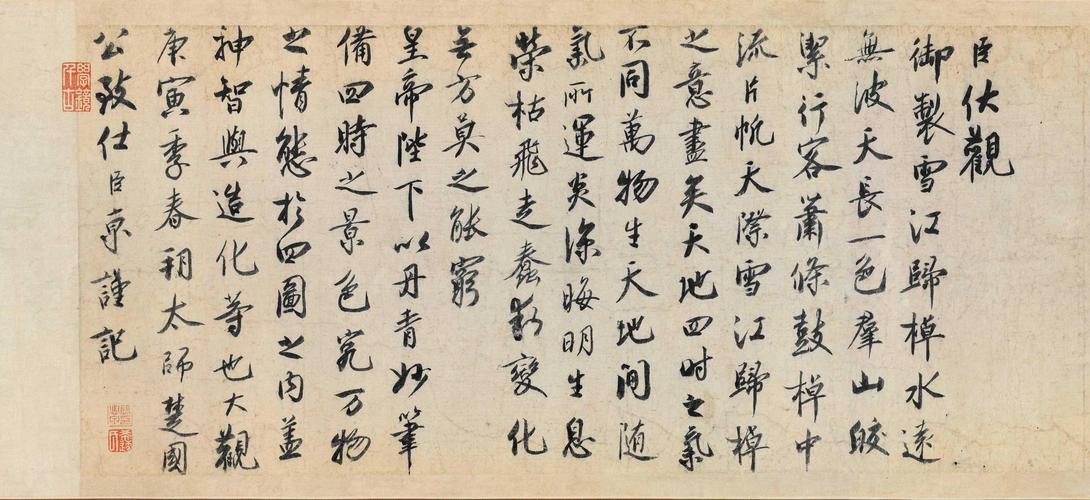 臣伏觀
御製雪江歸棹水遠
無波天長一色羣山皎
潔行客蕭條鼓棹中
流片帆天際雪江歸棹
之意盡矣天地四時之氣
不同萬物生天地間随
氣所運炎涼晦明生息
榮枯飛走蠢動變化
無方莫之能窮
皇帝陛下以丹青妙筆
備四時之景色究万物
之情態於四圖之内蓋
神智與造化等也大觀
庚寅季春朔太師楚國
公致仕臣京謹記